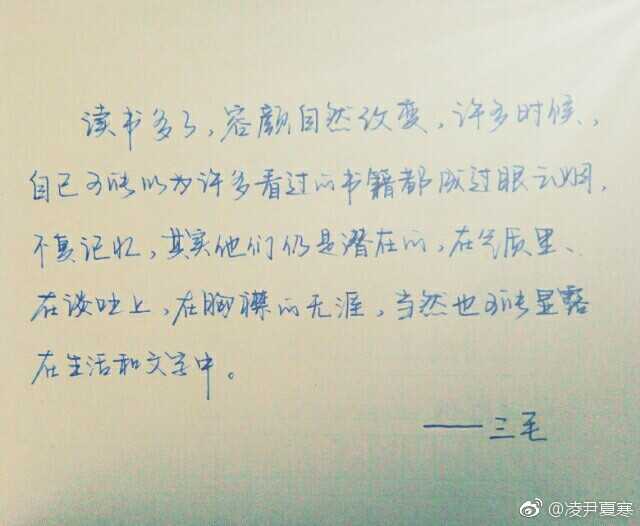 读书多了，容颜自然改变，许多时候，
自己可能以为许多看过的书籍都成过眼云烟，
不复记忆，其实他们仍是潜在的，在气质里、
在谈吐上，在胸襟的无涯，当然也可能显露
在生活和文字中。
——三毛
@凌尹夏寒